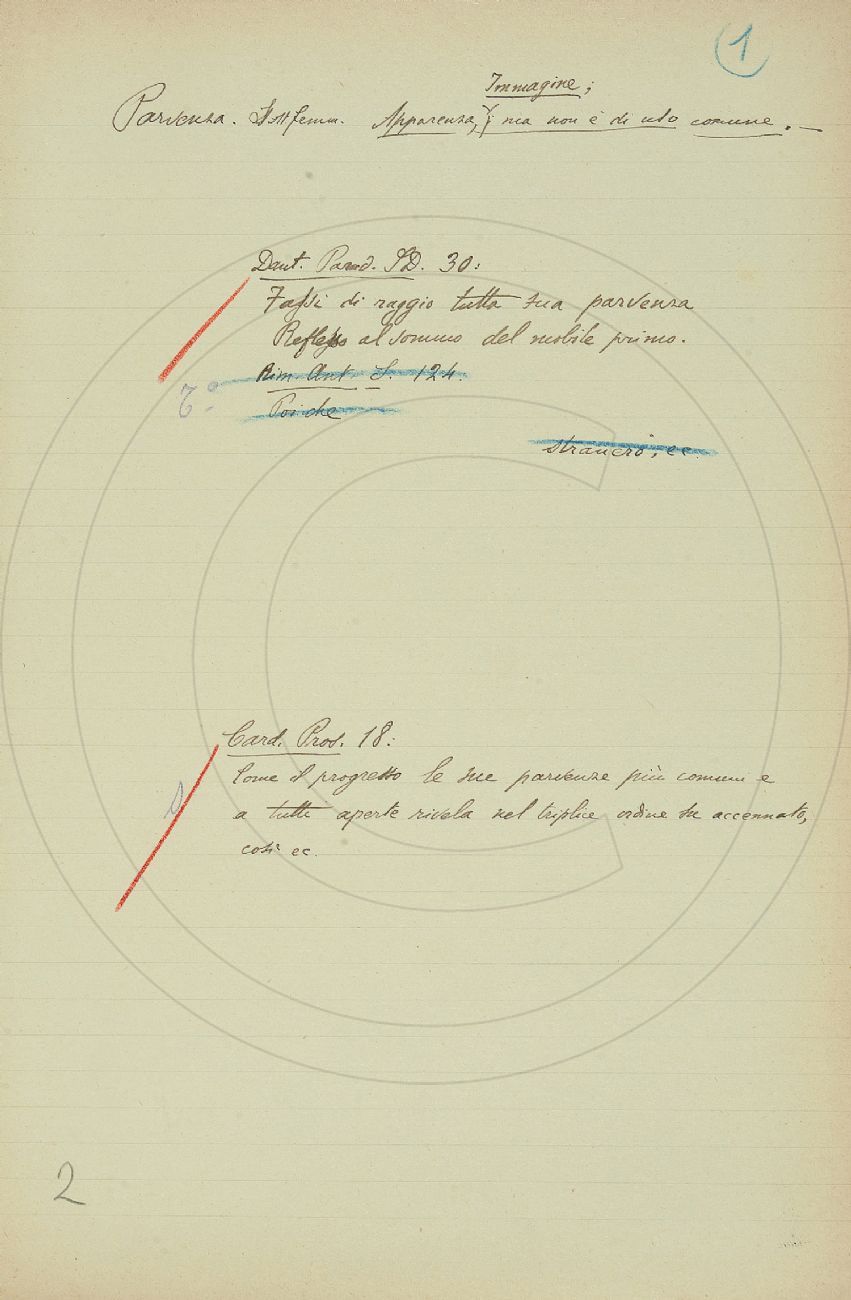 1
Immagine;
Parvenza. Sost femm. Apparenza, ma non è di uso comune. —
Dant. Parad. 30:
Fassi di raggio tutta sua parvenza
Reflesso al sommo del mobile primo.
Rim. Ant. 124.
Poi che
straniero, ec.
Card. Pros. 18:
Come il progresso le sue parvenze più comuni e
a tutti aperte rivela nel triplice ordine su accennato,
così ec.
2